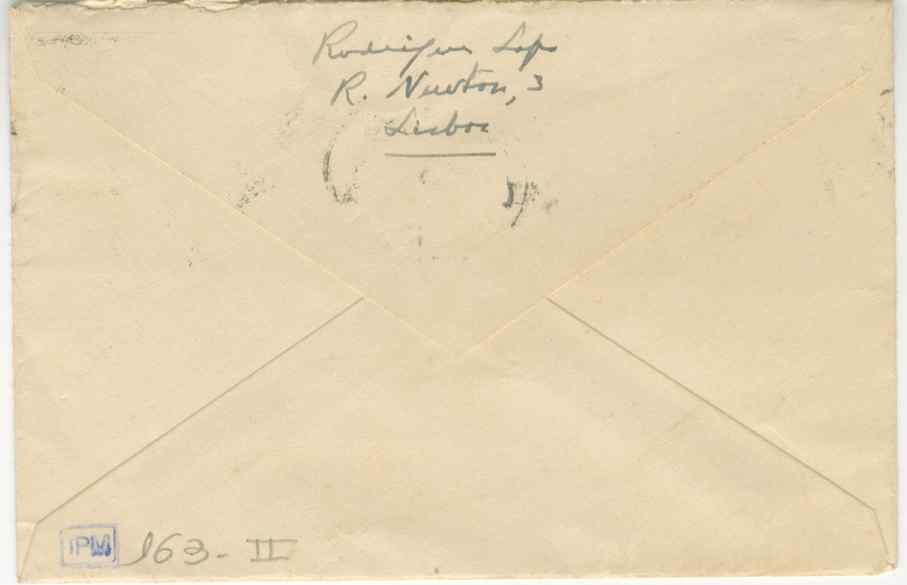 Rodrigues Lapa
R. Newton, 3
Lisboa
IPM 163 - II